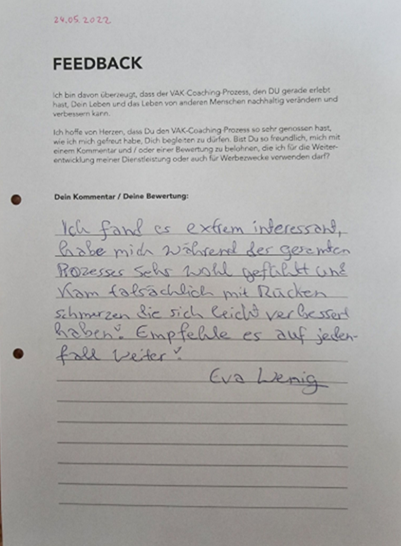 24.05.2022
FEEDBACK
Ich bin davon überzeugt, dass der VAK-Coaching-Prozess, den DU gerade erlebt
hast, Dein Leben und das Leben von anderen Menschen nachhaltig verändern und
verbessern kann.
Ich hoffe von Herzen, dass Du den VAK-Coaching-Prozess so sehr genossen hast,
wie ich mich gefreut habe, Dich begleiten zu dürfen. Bist Du so freundlich, mich mit
einem Kommentar und / oder einer Bewertung zu belohnen, die ich für die Weiter-
entwicklung meiner Dienstleistung oder auch für Werbezwecke verwenden darf?
Dein Kommentar / Deine Bewertung:
Ich fand es extrem interessant,
habe mich während des gesamten
Prozesses sehr wohl gefühlt und
kam tatsächlich mit Rücken
schmerzen die sich leicht verbessert
haben! Empfehle es auf jeden-
fall weiter!
Eva Wenig